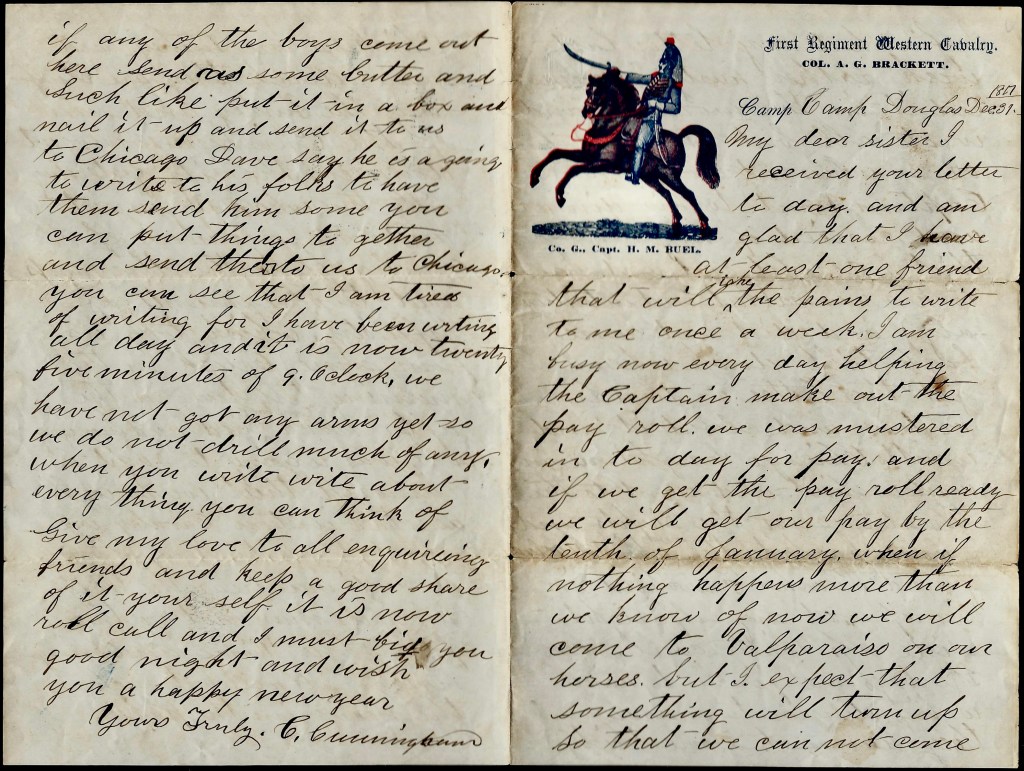 First Regiment Western Cavalry.
COL. A. G. BRACKETT.
1861
Camp Camp Douglas Dec 31.
My dear sister I
received your letter
to day. and am
glad that I have
Co. G., Capt. H. M. BUEL.
at least one friend
that will take the pains to write
to me once a week. I am
busy now every day helping
the Captain make out the
pay roll. we was mustered
in to day for pay. and
if we get the pay roll ready
we will get our pay by the
tenth of January when if
nothing happens more than
we know of now we will
come to Valparaiso on our
horses. but I. expect that
something will turn up
so that we can not come
if any of the boys come out
here send us some butter and
such like put it in a box and
nail it up and send it to us
to Chicago Dave say he is a going
to write to his folks to have
them send him some you
can put things to gether
and send them to us to Chicago.
you can see that I am tired
of writing for I have been wrting
all day and it is now twenty
five minutes of 9. Oclock, we
have not got any arms yet so
we do not drill much of any,
when you write wite about
every thing you can think of
Give my love to all enquireing
friends and keep a good share
of it your self it is now
roll call and I must bid you
good night and wish
you a happy new year
Yours Truly. C. Cunningham